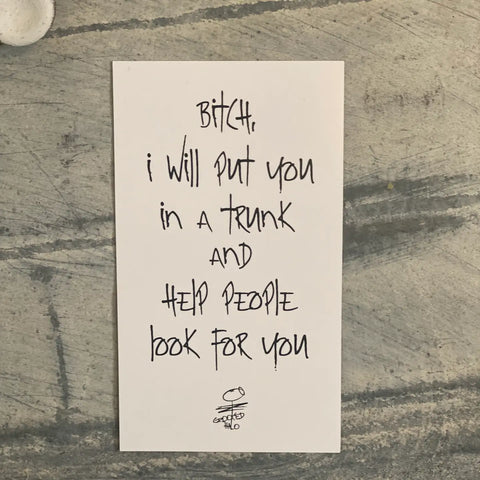 BitCH,
i will put you
in A trunk
AnD
HElP PEOPlE
look FOR you
CROOKED
HALO